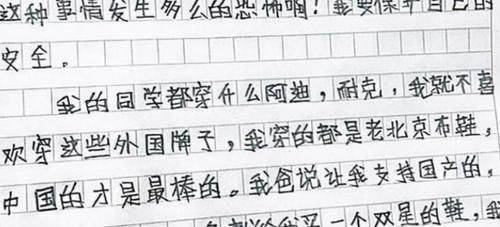 这种事情发生多么的恐怖啊！我要保护自己的
安全。
我的同学都穿什么阿迪，耐克，我就不喜
欢穿这些外国牌子，我穿的都是老北京布鞋，
中国的才是最棒的。我爸说让我支持国产的，
我买一个双星的鞋，我